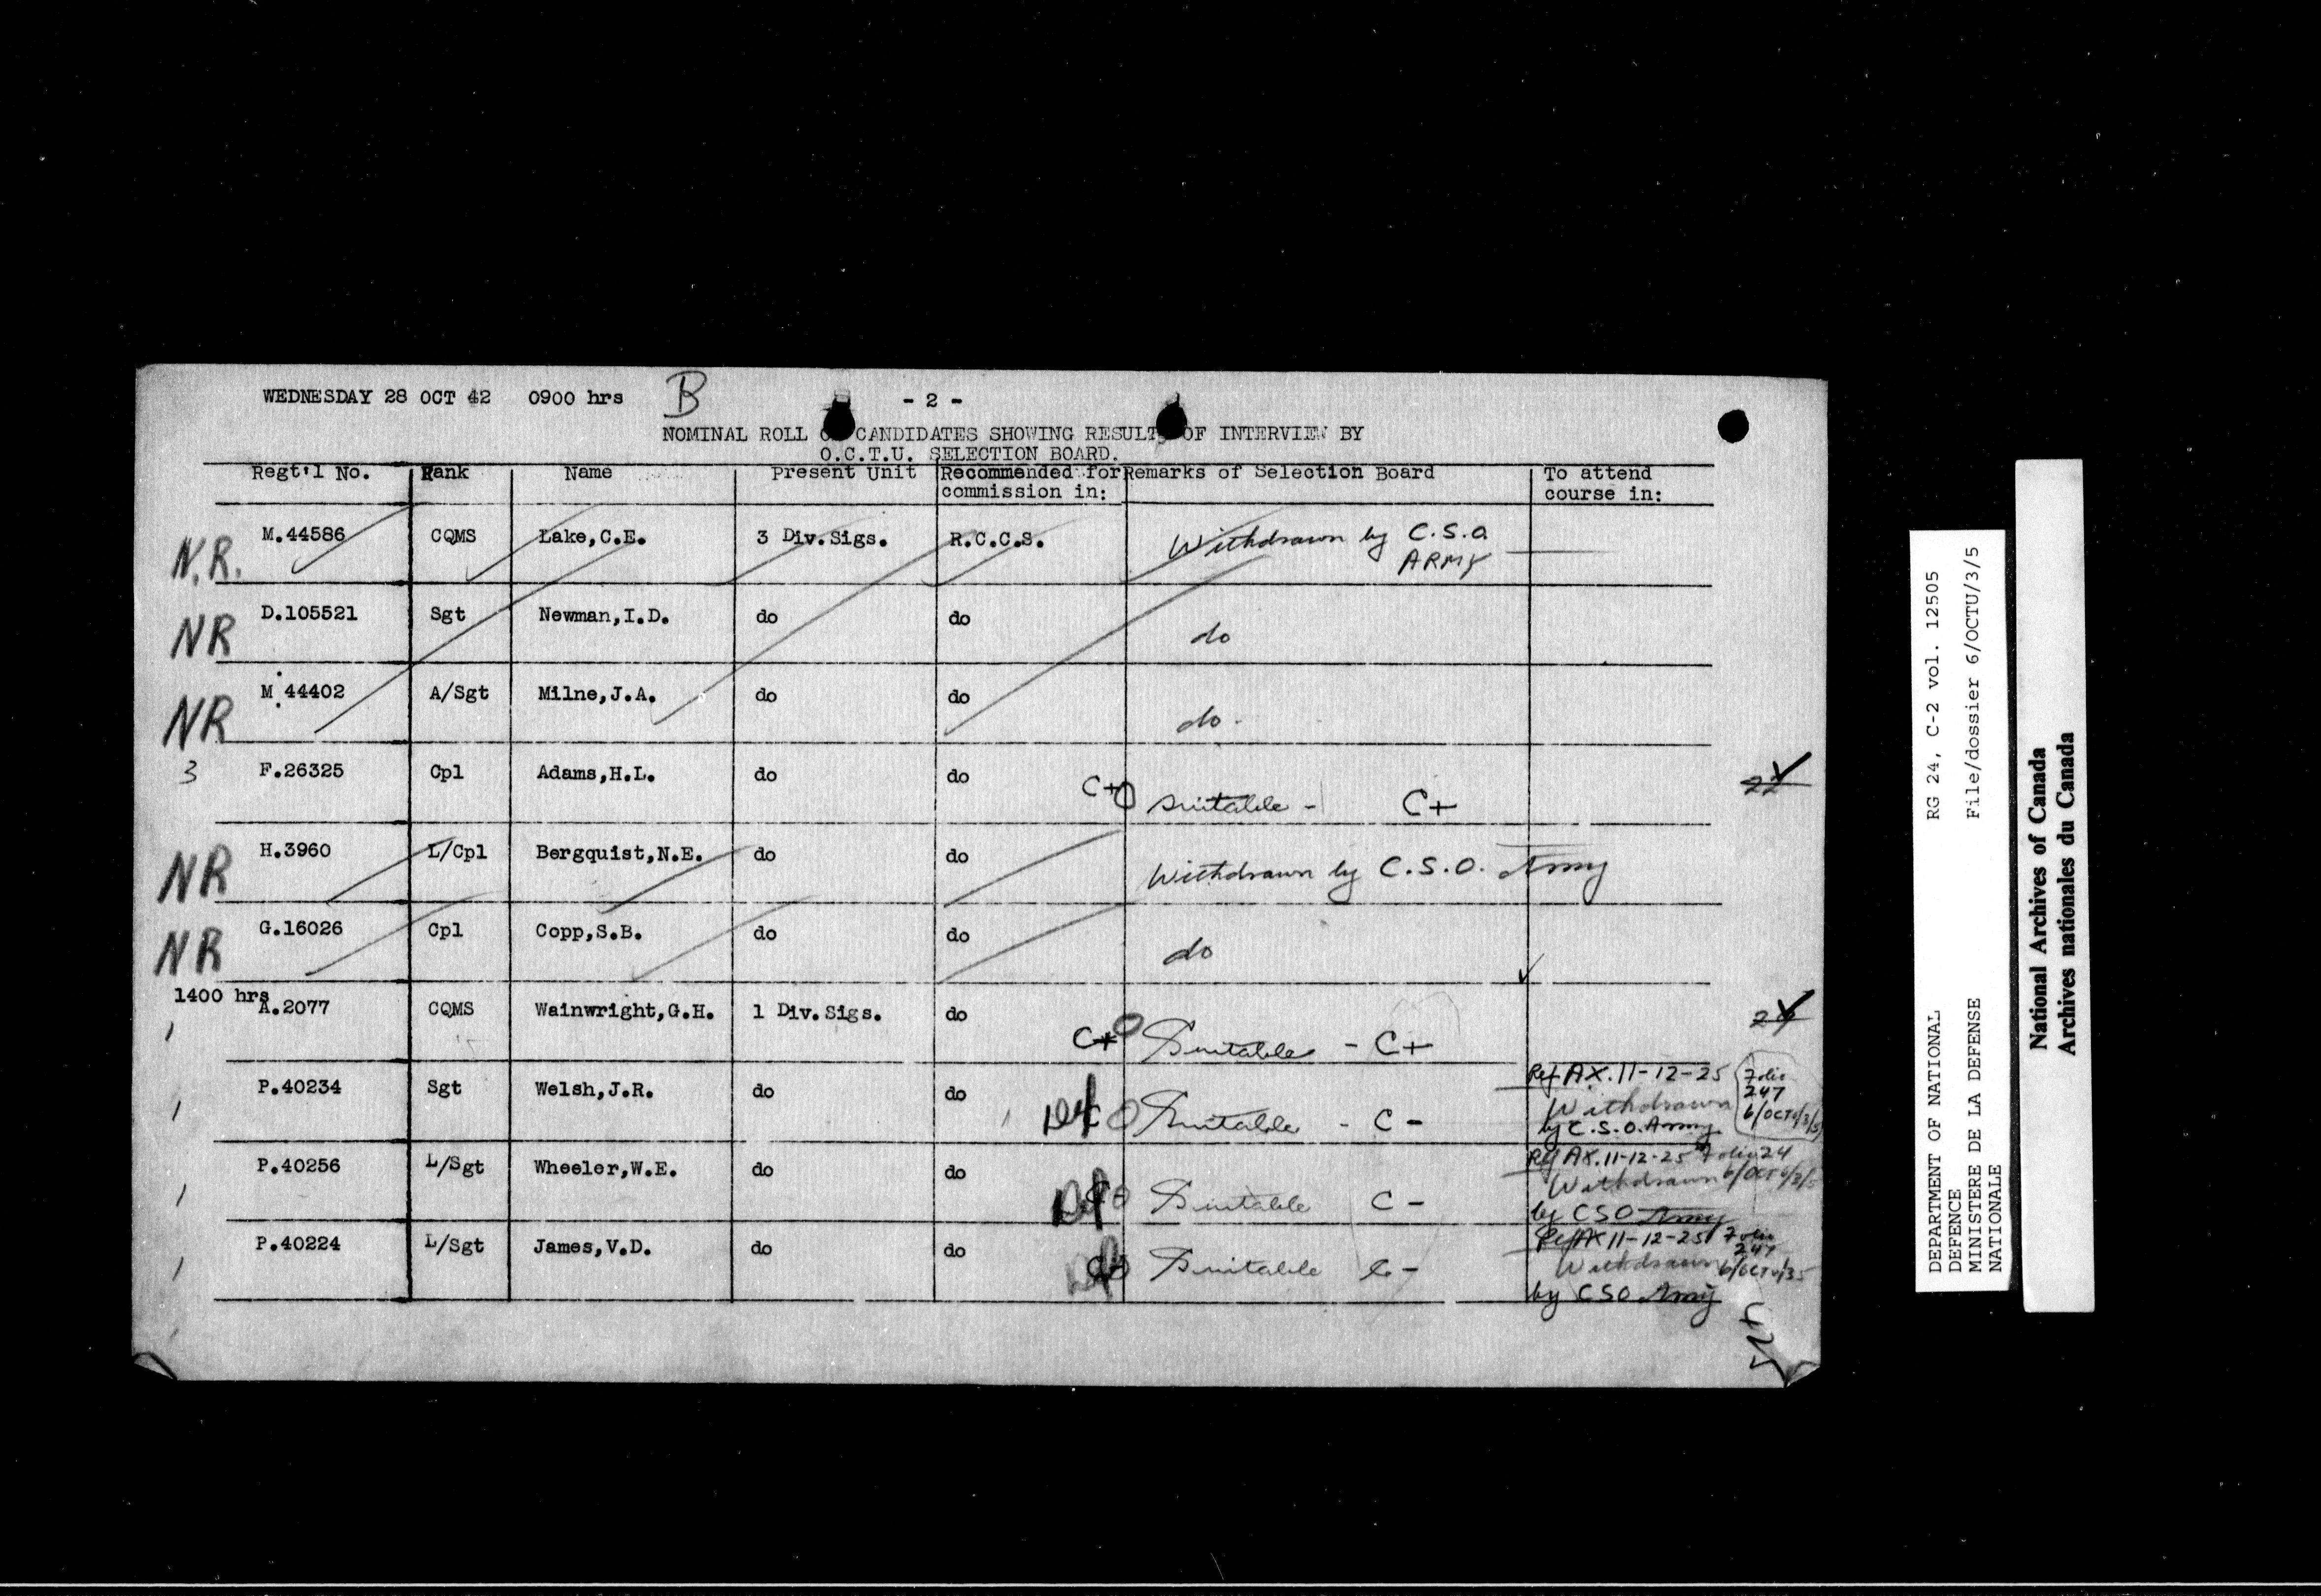 WEDNESDAY 28 OCT 42 0900 hrs B - 2 -
NOMINAL ROLL CANDIDATES SHOWING RESULTS OF INTERVIEW BY
O.C.T.U. SELECTION BOARD.
Regt'l No. Rank Name Present Unit Recommended for commission in: Remarks of Selection Board To attend course in:
N.R. M.44586 CQMS Lake,C.E. 3 Div.Sigs. R.C.C.S. Withdrawn by C.S.O. ARMY
NR D.105521 Sgt Newman,I.D. do do do
NR M.44402 A/Sgt Milne,J.A. do do do.
3 F.26325 Cpl Adams,H.L. do do C+ suitable - C+
NR H.3960 L/Cpl Bergquist,N.E. do do Withdrawn by C.S.O. Army
NR G.16026 Cpl Copp,S.B. do do do
1400 hrs
A.2077 CQMS Wainwright,G.H. 1 Div.Sigs. do C+ Suitable - C+
P.40234 Sgt Welsh,J.R. do do Suitable - C - Ref AX.11-12-25 Folio 247 6/OCTU/3/5 Withdrawn by C.S.O. Army
P.40256 L/Sgt Wheeler,W.E. do do Suitable C - Ref AX.11-12-25 Folio 24 Withdrawn 6/OCTU/3/5 by CSO Army
P.40224 L/Sgt James,V.D. do do Suitable C - Ref AX 11-12-25 Folio 247 Withdrawn 6/OCTU/35 by CSO Army
DEPARTMENT OF NATIONAL
DEFENCE
MINISTERE DE LA DEFENSE
NATIONALE
RG 24, C-2 vol. 12505
File/dossier 6/OCTU/3/5
National Archives of Canada
Archives nationales du Canada